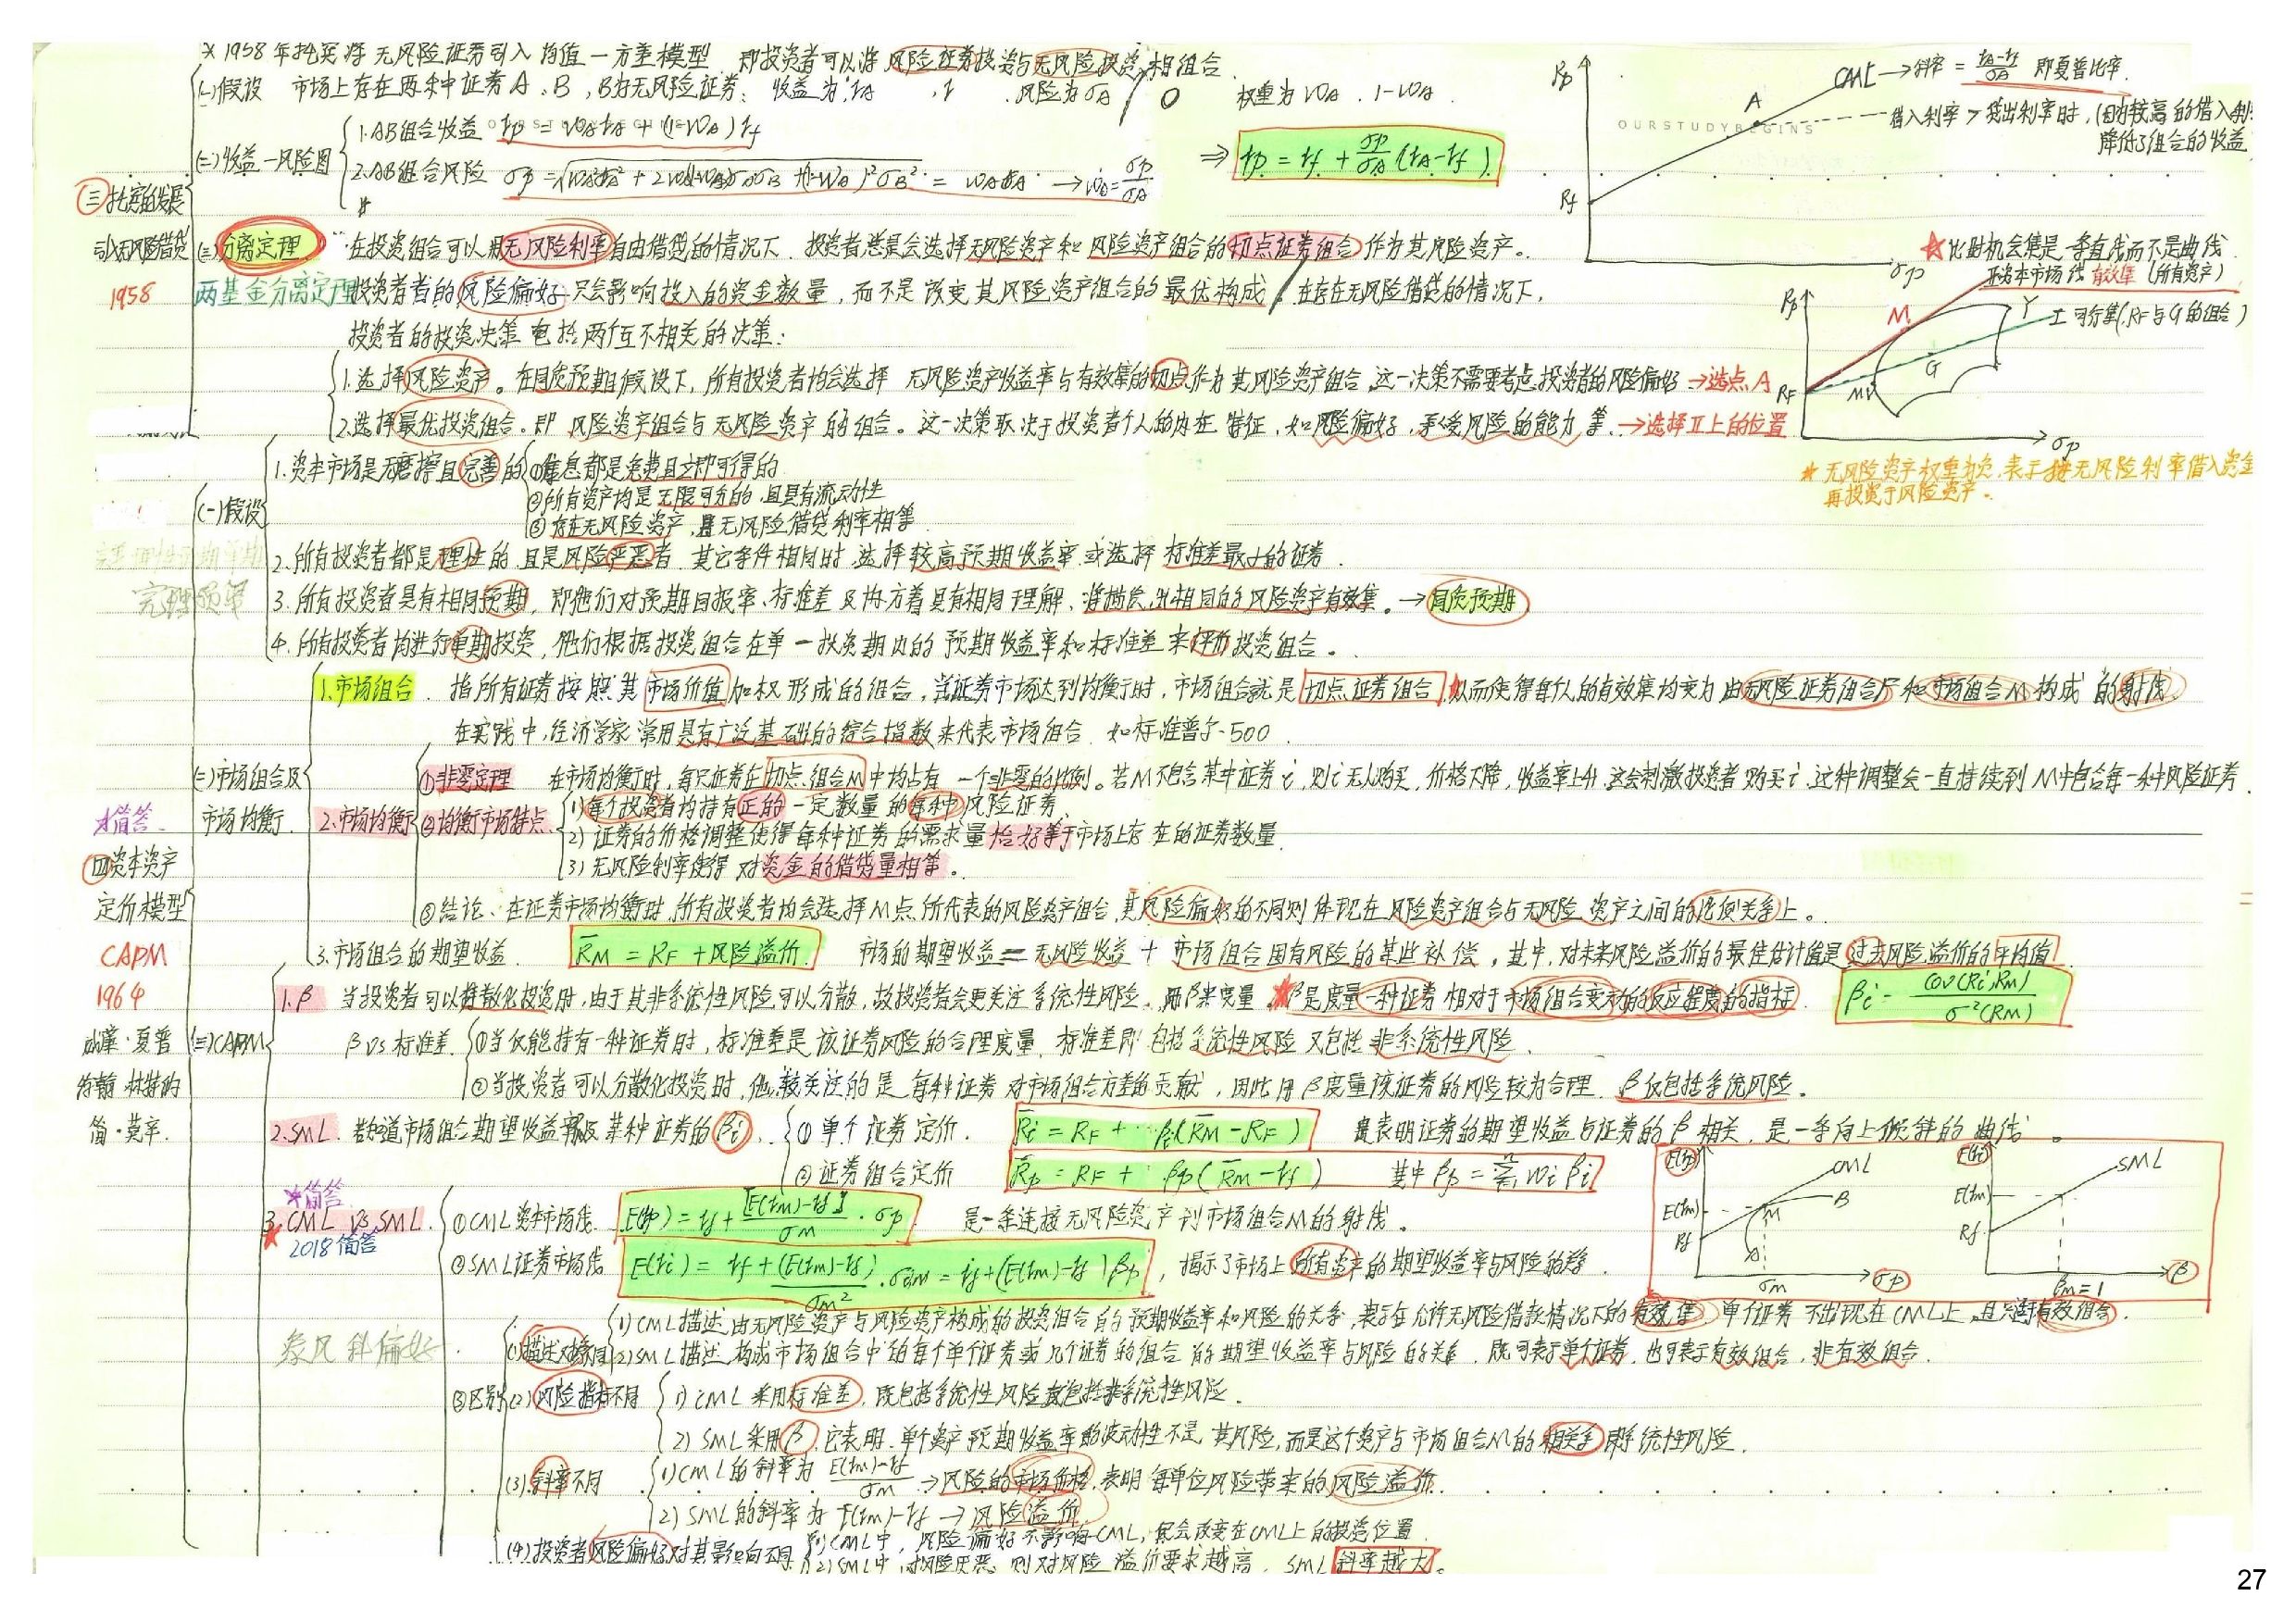 * 1958年托宾将无风险证券引入均值-方差模型 即投资者可以将风险证券投资与无风险投资相组合.
(一)假设 市场上存在两种中证券A、B,B为无风险证券; 收益为:rA , r . 风险为σA 0 权重为WA . 1-WA.
三 托宾的发展 引入无风险借贷 1958
(二)收益-风险图
1.AB组合收益 rp = WArA + (1-WA) rf
OURSTUDYBEGINS
2.AB组合风险 = WAσA → WA = σp/σA
⇒ rp = rf + σp/σA (rA-rf).
Rp CML → 斜率 = (rA-rf)/σA 即夏普比率.
A
借入利率 > 贷出利率时,
降低了组合的收益
OURSTUDYBEGINS
Rf
σp
(三)分离定理 在投资组合可以用无风险利率自由借贷的情况下. 投资者总是会选择无风险资产和风险资产组合的切点证券组合作为其风险资产.
两基金分离定理 投资者者的风险偏好只会影响投入的资金数量,而不是改变其风险资产组合的最优构成. 在存在无风险借贷的情况下,
投资者的投资决策包括两个互不相关的决策:
1.选择风险资产。在同质预期假设下,所有投资者均会选择 无风险资产收益率与有效集的切点作为其风险资产组合,这一决策不需要考虑投资者的风险偏好 →选点A
2.选择最优投资组合。即 风险资产组合与无风险资产的组合。这一决策取决于投资者个人的内在特征,如风险偏好,承受风险的能力等. →选择Ⅱ上的位置
★此时机会集是一条直线而不是曲线
Ⅱ资本市场线 有效集(所有资产)
Rp M Y
Ⅰ可行集(RF与G的组合)
G
RF MV
σp
★无风险资产权重为负,表示按无风险利率借入资金
再投资于风险资产.
*简答
四 资本资产定价模型
CAPM
1964
威廉·夏普
约翰·林特纳
简·莫辛.
(一)假设
1.资本市场是无磨擦且完善的
①信息都是免费且立即可得的
②所有资产均是无限可分的,且具有流动性
③存在无风险资产,且无风险借贷利率相等
2.所有投资者都是理性的,且是风险厌恶者,其它条件相同时,选择较高预期收益率,或选择标准差最小的证券.
3.所有投资者具有相同预期,即他们对预期回报率、标准差及协方差具有相同理解、将描绘出相同的风险资产有效集。→同质预期
4.所有投资者均进行单期投资,他们根据投资组合在单一投资期内的预期收益率和标准差来评价投资组合。
(二)市场组合及市场均衡.
1.市场组合. 指所有证券按照其市场价值加权形成的组合,当证券市场达到均衡时,市场组合就是切点证券组合,从而使得每个人的有效集均变为由无风险证券组合F和市场组合M构成的射线.
在实践中,经济学家常用具有广泛基础的综合指数来代表市场组合. 如标准普尔-500.
2.市场均衡
①非零定理 在市场均衡时,每只证券在切点组合M中均占有一个非零的比例。若M不包含某中证券i,则i无人购买,价格下降,收益率上升,这会刺激投资者购买i,这种调整会一直持续到M中包含每一种风险证券.
②均衡市场特点
1)每个投资者均持有正的一定数量的每种风险证券.
2)证券的价格调整使得每种证券的需求量恰好等于市场上存在的证券数量
3)无风险利率使得对资金的借贷量相等。
③结论、在证券市场均衡时,所有投资者均会选择M点所代表的风险资产组合,其风险偏好的不同则体现在风险资产组合与无风险资产之间的比例关系上。
3.市场组合的期望收益. R̄M = RF + 风险溢价. 市场的期望收益 = 无风险收益 + 市场组合固有风险的某些补偿,其中,对未来风险溢价的最佳估计值是过去风险溢价的平均值!
(三)CAPM
1.β 当投资者可以分散化投资时,由于其非系统性风险可以分散,故投资者会更关注系统性风险. 用β来度量. ★β是度量一种证券相对于市场组合变动的反应程度的指标. βi = COV(Ri,RM)/σ²(RM)
β vs 标准差. ①当仅能持有一种证券时,标准差是该证券风险的合理度量. 标准差即包括系统性风险又包括非系统性风险.
②当投资者可以分散化投资时,他较关注的是每种证券对市场组合方差的贡献,因此用β度量该证券的风险较为合理. β仅包括系统风险.
2.SML. 若知道市场组合期望收益率以及某种证券的βi. ①单个证券定价. R̄i = RF + βi(R̄M-RF) 是表明证券的期望收益与证券的β相关,是一条向上倾斜的曲线。
②证券组合定价 R̄p = RF + βp(R̄M-rf) 其中βp = Σ Wi βi
★简答
3.CML vs SML. 2018简答
①CML资本市场线. E(rp) = rf + [E(rm)-rf]/σM · σp 是一条连接无风险资产到市场组合M的射线.
②SML证券市场线 E(ri) = rf + (E(rm)-rf)/σM² · σim = rf + (E(rm)-rf)βp, 揭示了市场上所有资产的期望收益率与风险的关系.
E(rp) CML E(rm) M B Rf A σm σp
E(ri) SML E(rm) Rf βm=1 β
③区别
(1)描述对象不同
1)CML描述由无风险资产与风险资产构成的投资组合的预期收益率和风险的关系,表示在允许无风险借款情况下的有效集,单个证券不出现在CML上,且只适有效组合.
2)SML描述构成市场组合中的每个单个证券或几个证券的组合的期望收益率与风险的关系,既可表示单个证券,也可表示有效组合,非有效组合.
(2)风险指标不同
1)CML采用标准差,既包括系统性风险也包括非系统性风险.
2)SML采用β,它表明,单个资产预期收益率的波动性不是其风险,而是这个资产与市场组合M的相关系 即系统性风险.
(3)斜率不同
1)CML的斜率为 (E(rm)-rf)/σM →风险的市场价格,表明每单位风险带来的风险溢价.
2)SML的斜率为 E(rm)-rf →风险溢价.
(4)投资者风险偏好对其影响不同
1)CML中,风险偏好不影响CML,但会改变在CML上的投资位置
2)SML中,越风险厌恶,则对风险溢价要求越高,SML斜率越大。
27